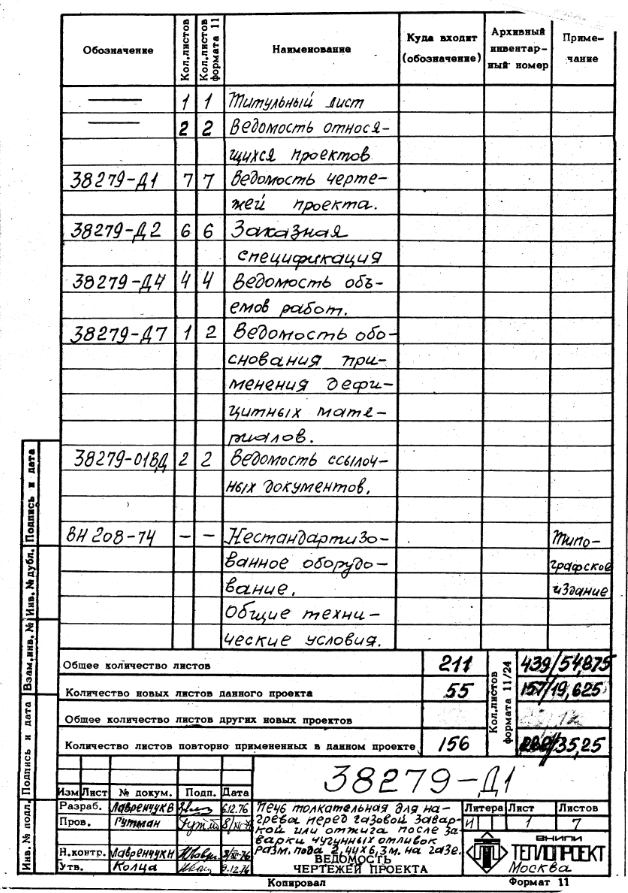 Обозначение Кол.листов Кол.листов формата 11 Наименование Куда входит (обозначение) Архивный инвентарный номер Примечание
— 1 1 Титульный лист
— 2 2 Ведомость относя-
щихся проектов
38279-Д1 7 7 Ведомость черте-
жей проекта.
38279-Д2 6 6 Заказная
спецификация
38279-Д4 4 4 Ведомость объ-
емов работ.
38279-Д7 1 2 Ведомость обо-
снования при-
менения дефи-
цитных мате-
риалов.
38279-01ВД 2 2 Ведомость ссылоч-
ных документов.
ВН 208-74 – – Нестандартизо- Типо-
ванное оборудо- графское
вание. издание
Общие техни-
ческие условия.
Общее количество листов 211 Кол.листов формата 11/24 439/54,875
Количество новых листов данного проекта 55 157/19,625
Общее количество листов других новых проектов
Количество листов повторно примененных в данном проекте 156 /35,25
38279-Д1
Изм Лист № докум. Подп. Дата
Разраб. Лавренчук В 6.12.76
Пров. Гутман
Н.контр. Лавренчук Н
Утв. Колца 9.12.76
Печь толкательная для на-
грева перед газовой завар-
кой или отжига после за-
варки чугунных отливок
разм. пода 2,4их6,3м. на газе.
ВЕДОМОСТЬ
ЧЕРТЕЖЕЙ ПРОЕКТА
Литера Лист Листов
И 1 7
ВНИПИ
ТЕПЛОПРОЕКТ
Москва
Копировал Формат 11
Инв. № подл. Подпись и дата Взам.инв. № Инв. № дубл. Подпись и дата